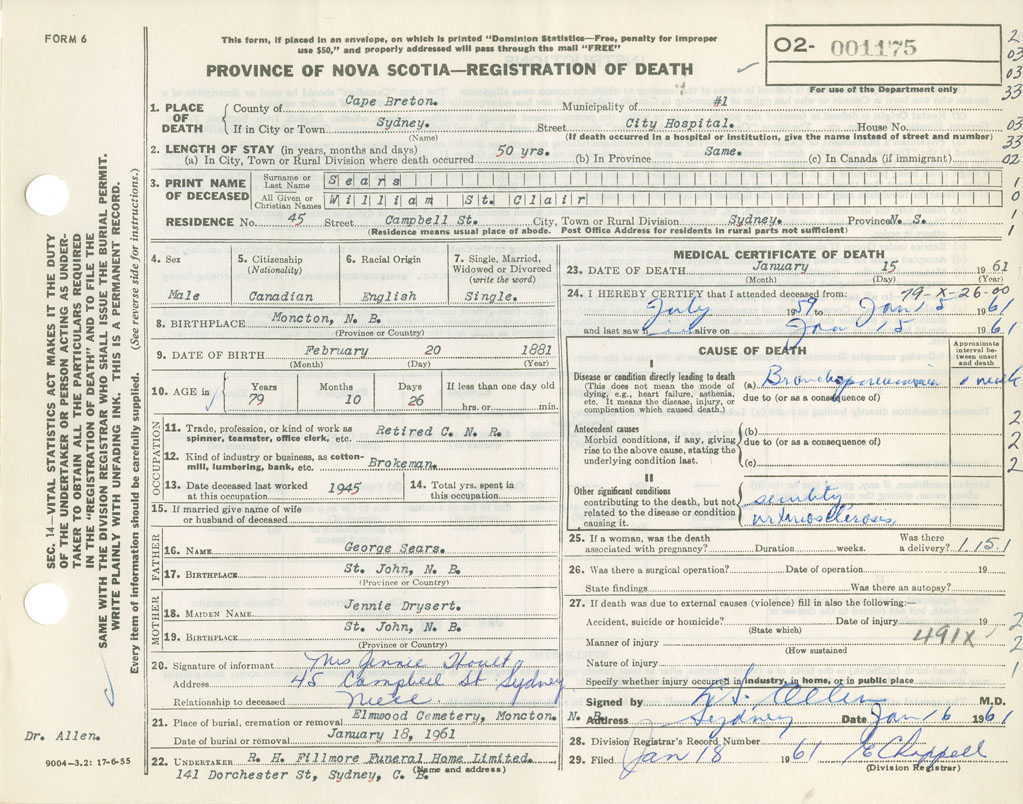 FORM 6
This form, if placed in an envelope, on which is printed "Dominion Statistics—Free, penalty for improper
use $50," and properly addressed will pass through the mail "FREE"
PROVINCE OF NOVA SCOTIA—REGISTRATION OF DEATH
02- 001175
For use of the Department only
2
03
03
33
03
33
02
1
0
1
1
SEC. 14—VITAL STATISTICS ACT MAKES IT THE DUTY
OF THE UNDERTAKER OR PERSON ACTING AS UNDER-
TAKER TO OBTAIN ALL THE PARTICULARS REQUIRED
IN THE "REGISTRATION OF DEATH" AND TO FILE THE
SAME WITH THE DIVISION REGISTRAR WHO SHALL ISSUE THE BURIAL PERMIT.
WRITE PLAINLY WITH UNFADING INK. THIS IS A PERMANENT RECORD.
Every item of information should be carefully supplied. (See reverse side for instructions.)
1. PLACE OF DEATH
County of Cape Breton. Municipality of #1
If in City or Town Sydney. Street City Hospital. House No.
(Name) (If death occurred in a hospital or institution, give the name instead of street and number)
2. LENGTH OF STAY (in years, months and days)
(a) In City, Town or Rural Division where death occurred 50 yrs. (b) In Province Same. (c) In Canada (if immigrant)
3. PRINT NAME OF DECEASED
Surname or Last Name Sears
All Given or Christian Names William St. Clair
RESIDENCE No. 45 Street Campbell St. City, Town or Rural Division Sydney. Province N. S.
(Residence means usual place of abode. Post Office Address for residents in rural parts not sufficient)
4. Sex
Male
5. Citizenship (Nationality)
Canadian
6. Racial Origin
English
7. Single, Married, Widowed or Divorced (write the word)
Single.
8. BIRTHPLACE Moncton, N. B.
(Province or Country)
9. DATE OF BIRTH February 20 1881
(Month) (Day) (Year)
10. AGE in
Years 79
Months 10
Days 26
If less than one day old
hrs. or min.
OCCUPATION
11. Trade, profession, or kind of work as spinner, teamster, office clerk, etc. Retired C. N. R.
12. Kind of industry or business, as cotton-mill, lumbering, bank, etc. Brokeman.
13. Date deceased last worked at this occupation 1945
14. Total yrs. spent in this occupation
15. If married give name of wife or husband of deceased
FATHER
16. NAME George Sears.
17. BIRTHPLACE St. John, N. B.
(Province or Country)
MOTHER
18. MAIDEN NAME Jennie Drysert.
19. BIRTHPLACE St. John, N. B.
(Province or Country)
20. Signature of informant Mrs Jennie Hoult
Address 45 Campbell St Sydney
Relationship to deceased Niece.
21. Place of burial, cremation or removal Elmwood Cemetery, Moncton. N. B.
Date of burial or removal January 18, 1961
22. UNDERTAKER R. H. Fillmore Funeral Home Limited.
141 Dorchester St, Sydney, C. B.
(Name and address)
Dr. Allen.
9004—3.2: 17-6-55
MEDICAL CERTIFICATE OF DEATH
23. DATE OF DEATH January 15 1961
(Month) (Day) (Year)
79-X-26-00
24. I HEREBY CERTIFY that I attended deceased from:
July 1959 to Jan 15 1961
and last saw alive on Jan 15 1961
CAUSE OF DEATH
Approximate interval between onset and death
I
Disease or condition directly leading to death
(This does not mean the mode of dying, e.g., heart failure, asthenia, etc. It means the disease, injury, or complication which caused death.)
(a) Bronchopneumonia 1 week
due to (or as a consequence of)
Antecedent causes
Morbid conditions, if any, giving rise to the above cause, stating the underlying condition last.
(b)
due to (or as a consequence of)
(c)
2
2
2
II
Other significant conditions
contributing to the death, but not related to the disease or condition causing it.
senility
arteriosclerosis
25. If a woman, was the death associated with pregnancy? Duration weeks. Was there a delivery? 1.15.1
26. Was there a surgical operation? Date of operation 19
State findings Was there an autopsy?
27. If death was due to external causes (violence) fill in also the following:—
Accident, suicide or homicide? Date of injury 19
(State which)
491X
Manner of injury
(How sustained
Nature of injury
Specify whether injury occured in industry, in home, or in public place
2
2
1
1
Signed by Allen M.D.
Address Sydney Date Jan 16 1961
28. Division Registrar's Record Number
29. Filed Jan 18 1961 E Chappell
(Division Registrar)